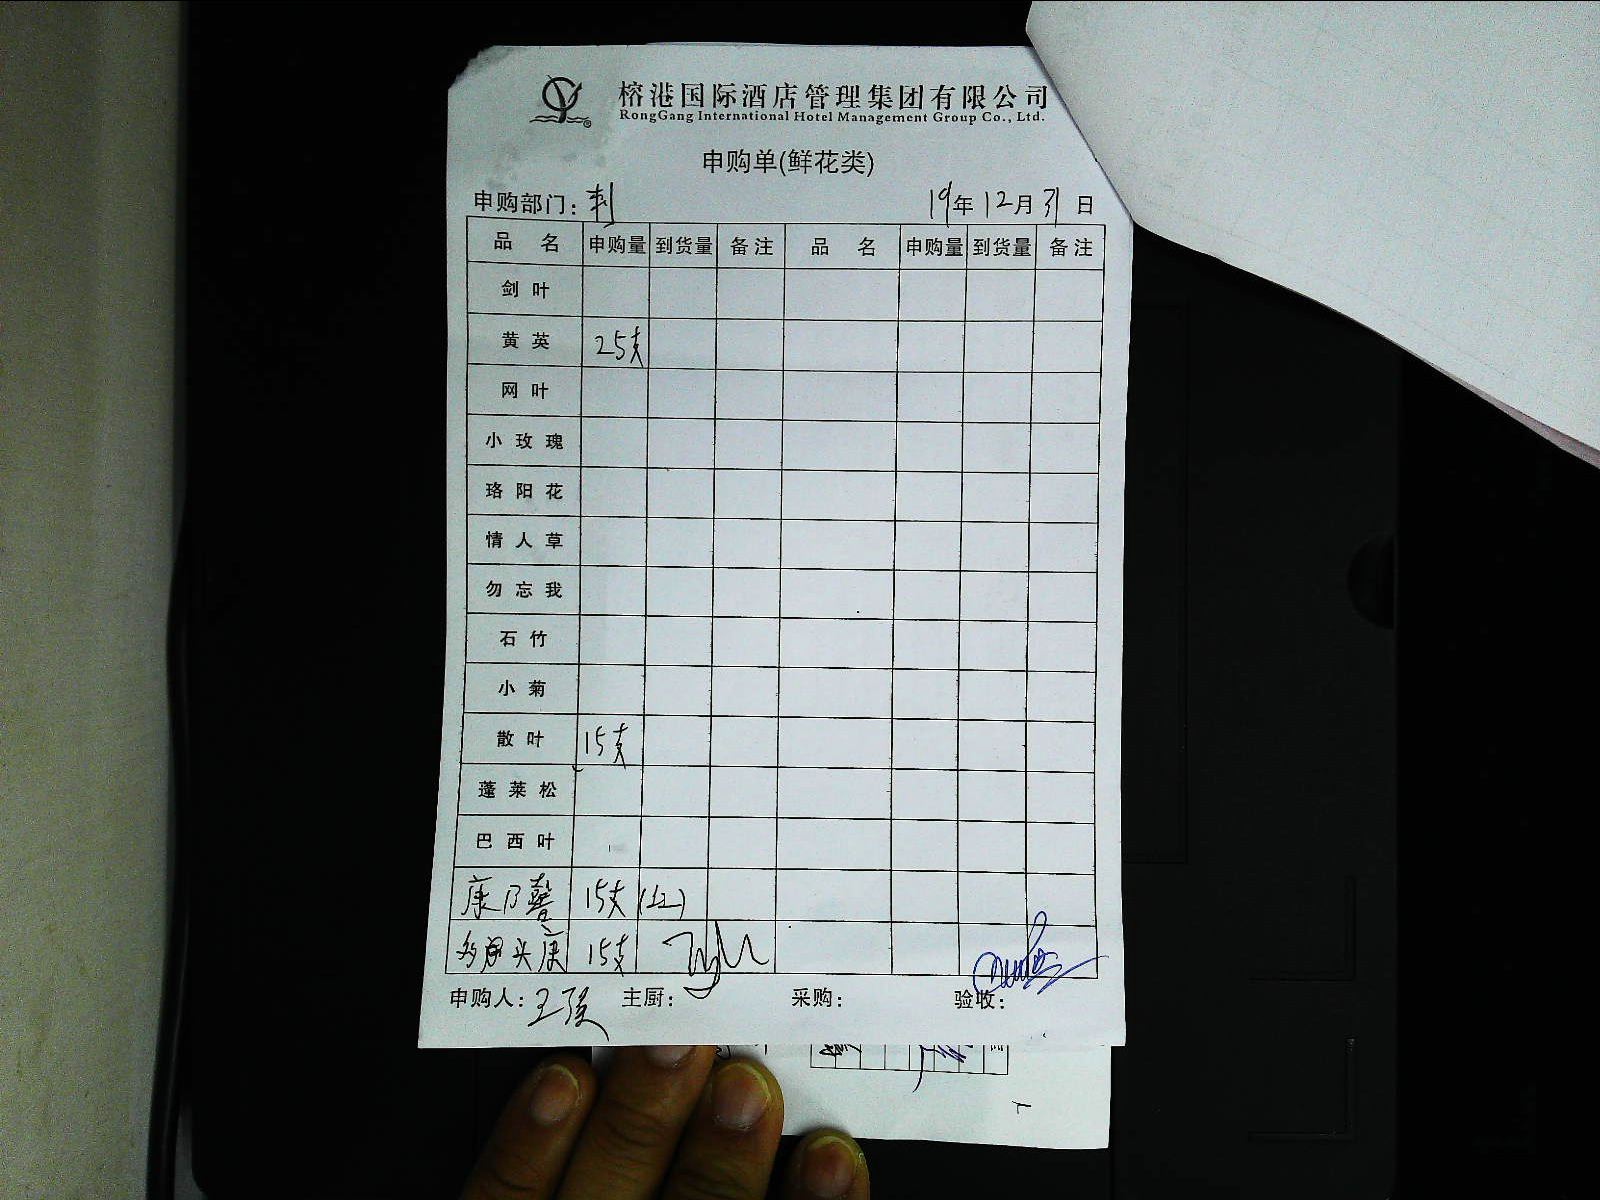 榕港国际酒店管理集团有限公司
RongGang International Hotel Management Group Co., Ltd.
申购单(鲜花类)
申购部门: 刺 19年12月31日
品名 申购量 到货量 备注 品名 申购量 到货量 备注
剑叶
黄英 25支
网叶
小玫瑰
珞阳花
情人草
勿忘我
石竹
小菊
散叶 15支
蓬莱松
巴西叶
康乃馨 15支 (红)
多头康 15支
申购人: 王 主厨: 采购: 验收: